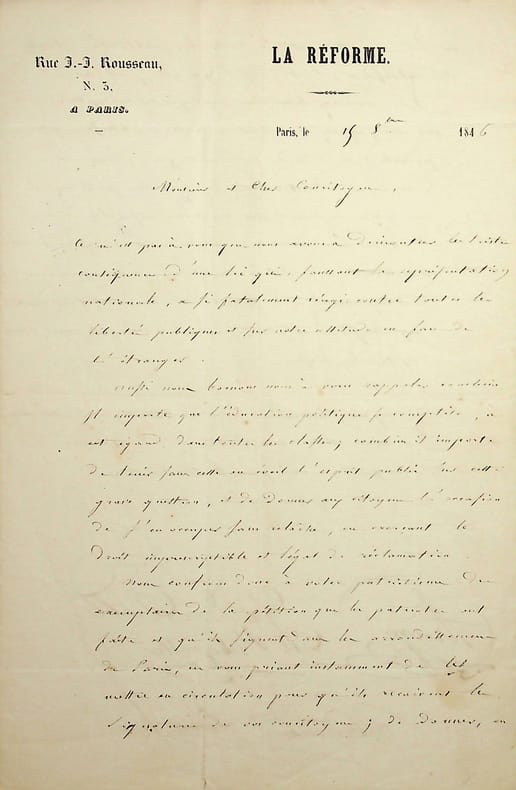 Rue J.-J. Rousseau,
N. 3,
A PARIS.
LA RÉFORME.
Paris, le 15 8bre 1846
Monsieur et Cher Concitoyen,
Ce n'est pas à vous que nous avons à démontrer les tristes
conséquences d'une loi qui, faussant la représentation
nationale, a si fatalement réagi contre toutes les
libertés publiques et sur notre attitude en face de
l'étranger.
Aussi nous bornons nous à vous rappeler combien
il importe que l'éducation politique se complète, à
cet égard dans toutes les classes; combien il importe
de tenir sans cesse en éveil l'esprit public sur cette
grave question, et de donner aux citoyens l'occasion
de s'en occuper sans relâche, en exerçant le
droit imprescriptible et légal de réclamation.
Nous confions donc à votre patriotisme des
exemplaires de la pétition que les patriotes ont
faite et qu'ils signent dans les arrondissemens
de Paris, en vous priant instamment de les
mettre en circulation pour qu'ils reçoivent les
signatures de vos concitoyens; de donner, en